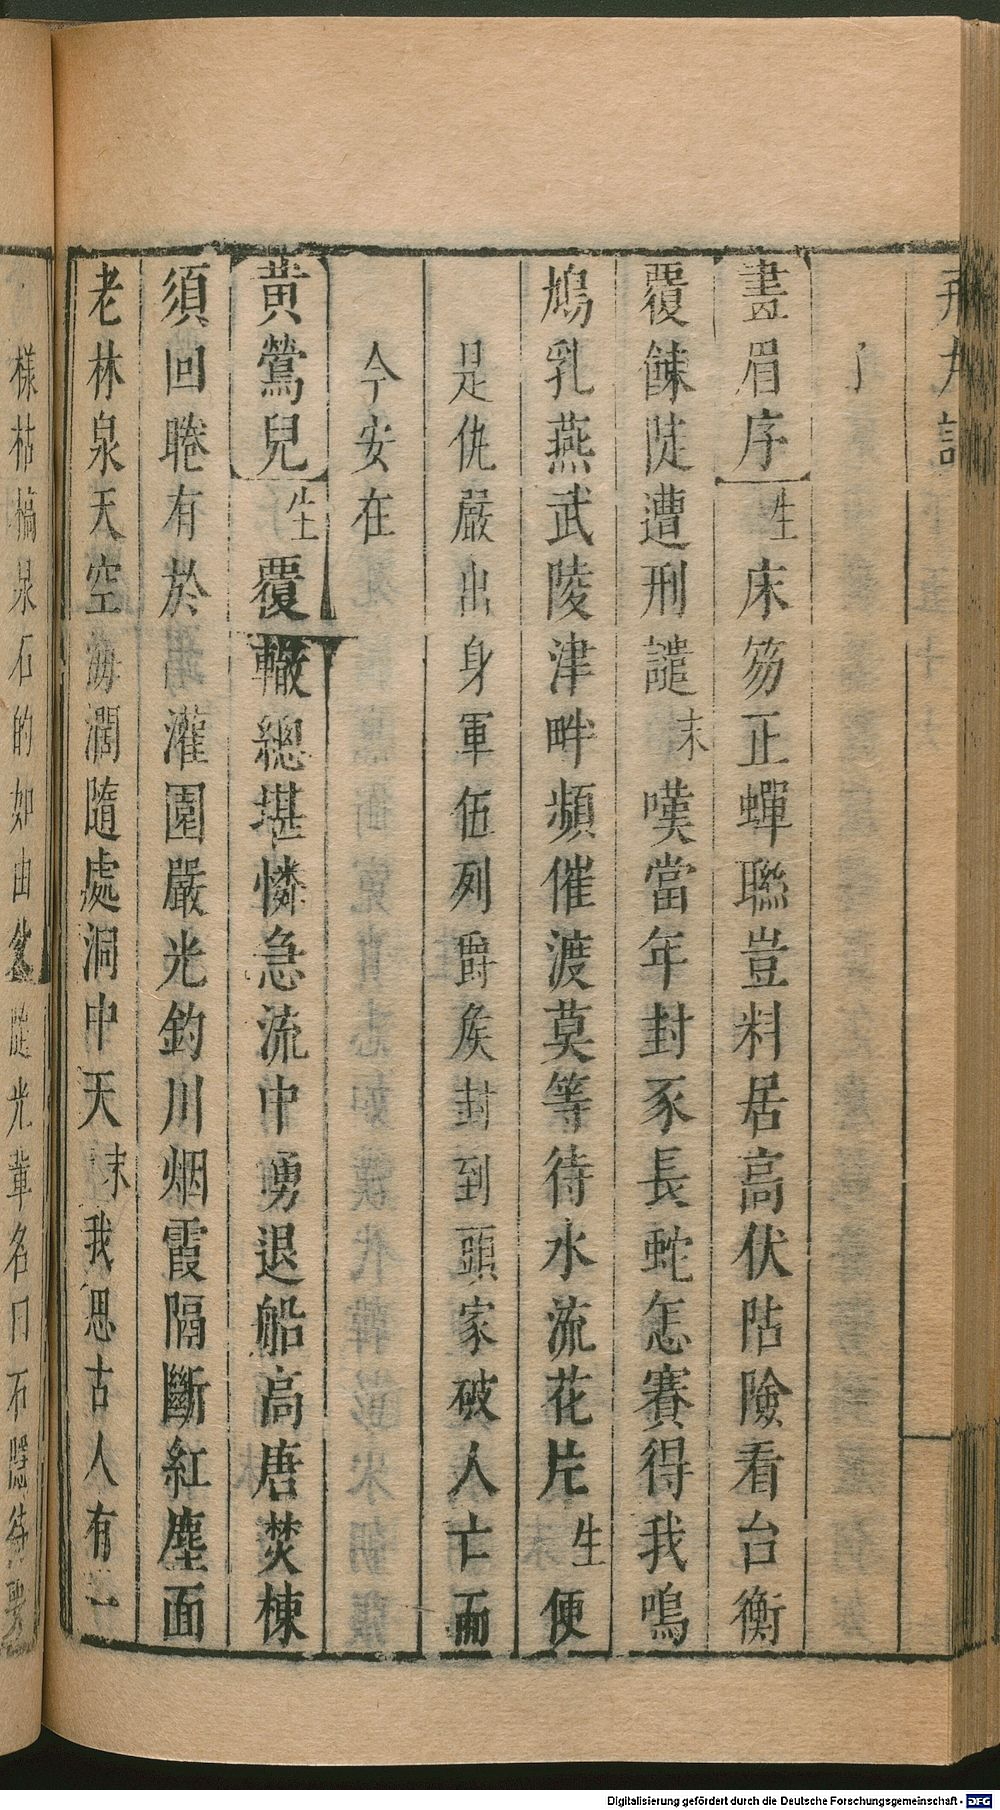 了
畫眉序生床笏正蟬聯豈料居高伏阽險看台衡
覆餗陡遭刑譴末嘆當年封豕長蛇怎賽得我鳴
鳩乳燕武陵津畔頻催渡莫等待水流花片生便
是仇嚴出身軍伍列爵矦封到頭家破人亡而
今安在
黃鶯兒生覆轍總堪憐急流中勇退船高唐焚棟
須回睠有於灌園嚴光釣川烟霞隔斷紅塵面
老林泉天空海濶隨處洞中天末我思古人有一
樣枯槁泉石的如由光輩名曰不隱待
Digitalisierung gefördert durch die Deutsche Forschungsgemeinschaft - DFG